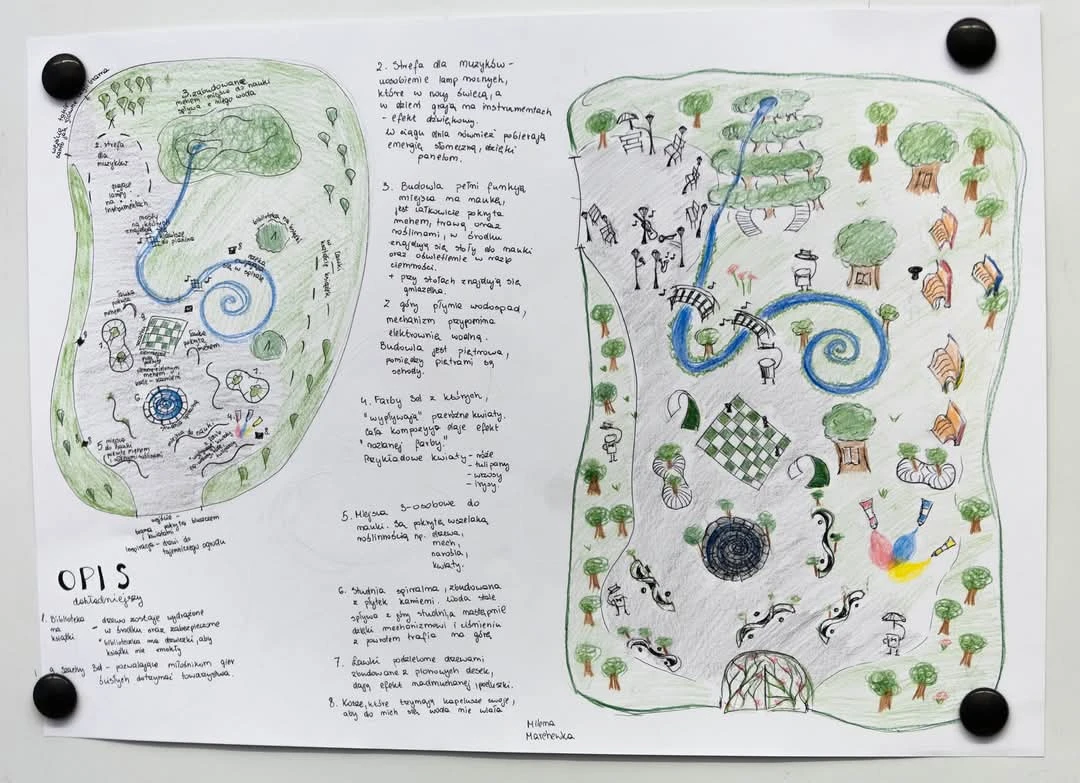 brama
3. zabudowane
mchem miejsce do nauki
spływa z niego woda
2. strefa
dla
muzyków
grające
lampy
na
instrumentach
mosty
biblioteka na
książki
8
rzeka
w spirale
ławki
w kształcie książek
ławka
pokryta
mchem
9
7.
ławka
pokryta
mchem
7.
6.
4.
8
5 miejsce
do nauki
pokryte mchem
i różnymi roślinami
miejsce do nauki
wejście -
brama pokryta bluszczem
i kwiatami
inspiracja - drzwi do
tajemniczego ogrodu
OPIS
dokładniejszy
1. Biblioteka
na
książki
- drzewo zostaje wydrążone
w środku oraz zabezpieczone
* biblioteczka ma drzwiczki aby
książki nie zmokły
9. Szachy 3d - pozwalające miłośnikom gier
ścisłych dotrzymać towarzystwa.
2. Strefa dla muzyków -
uosobienie lamp nocnych,
które w nocy świecą, a
w dzień grają na instrumentach
- efekt dźwiękowy.
W ciągu dnia również pobierają
energię słoneczną, dzięki
panelom.
3. Budowla pełni funkcję
miejsca na naukę,
jest całkowicie pokryta
mchem, trawą oraz
roślinami, w środku
znajdują się stoły do nauki
oraz oświetlenie w razie
ciemności.
+ przy stołach znajdują się
gniazdka.
Z góry płynie wodospad,
mechanizm przypomina
elektrownię wodną.
Budowla jest piętrowa,
pomiędzy piętrami są
schody.
4. Farby 3d z których,
"wypływają" przeróżne kwiaty.
Cała kompozycja daje efekt
"rozlanej farby."
Przykładowe kwiaty - róże
- tulipany
- wrzosy
- irysy
5. Miejsca 3-osobowe do
nauki. Są pokryte wszelaką
roślinnością np. drzewa,
mech,
kwiaty.
6. Studnia spiralna, zbudowana
z płytek kamieni. Woda stale
spływa z góry studni, a następnie
dzięki mechanizmowi i ciśnieniu
z powrotem trafia na górę
7. Ławki podzielone drzewami
zbudowane z pionowych desek,
dają efekt nadmuchanej poduszki.
8. Kosze, które trzymają kapelusze swoje,
aby do nich się woda nie wlała
Milena
Marchewka